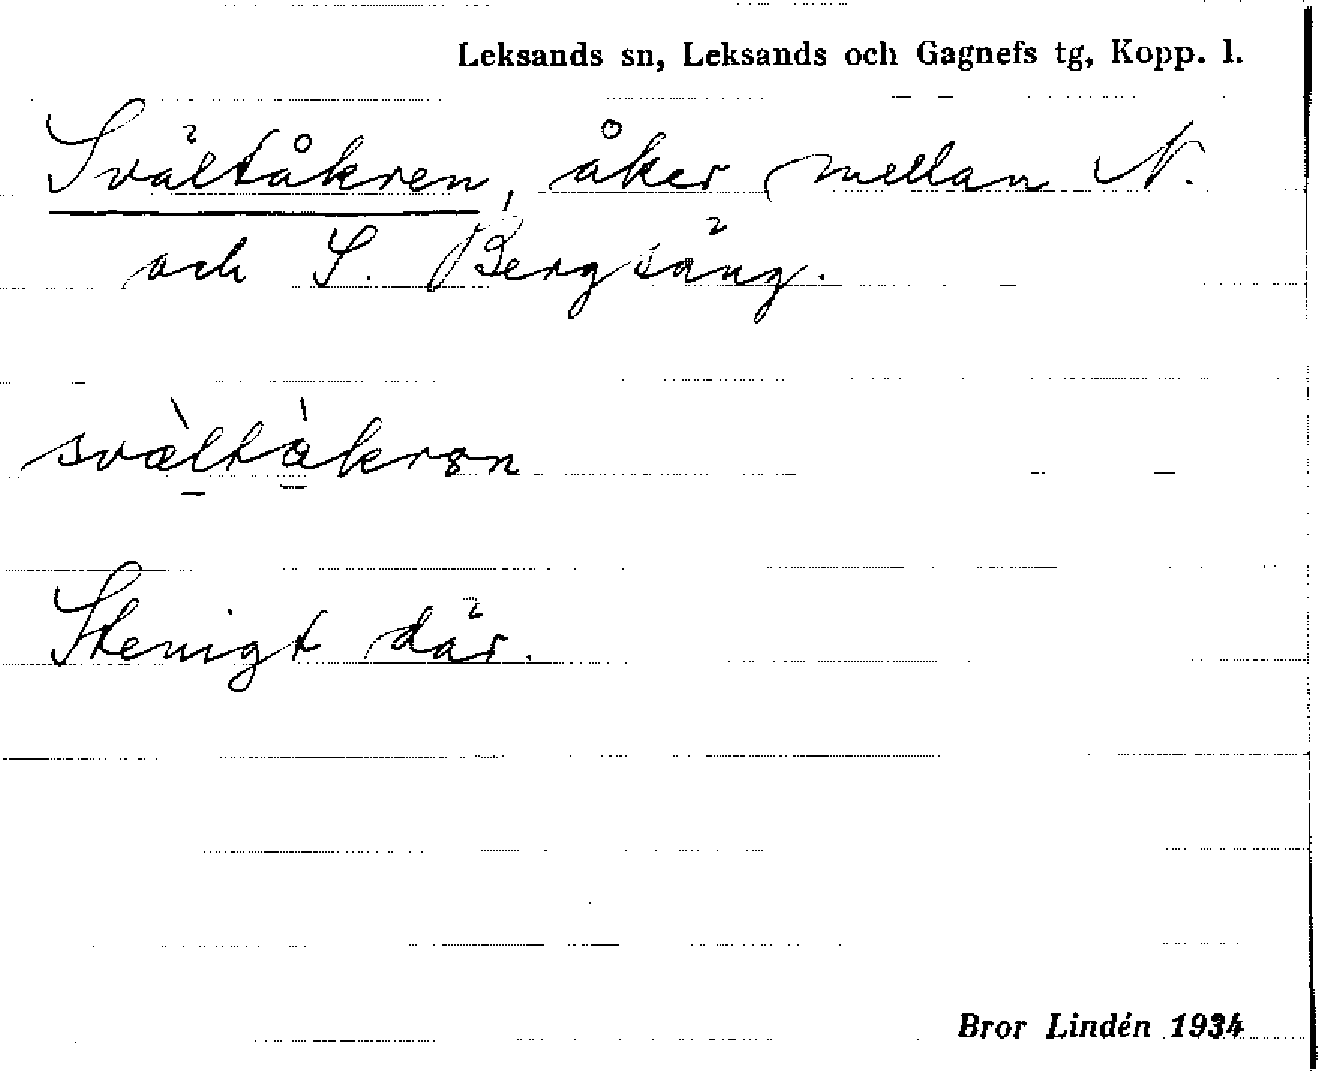 Leksands sn, Leksands och Gagnefs tg, Kopp. l.
Svältåkren, åker mellan N.
och S. Bergsäng.
svæ̀ltàkrən
Stenigt där.
Bror Lindén 1934